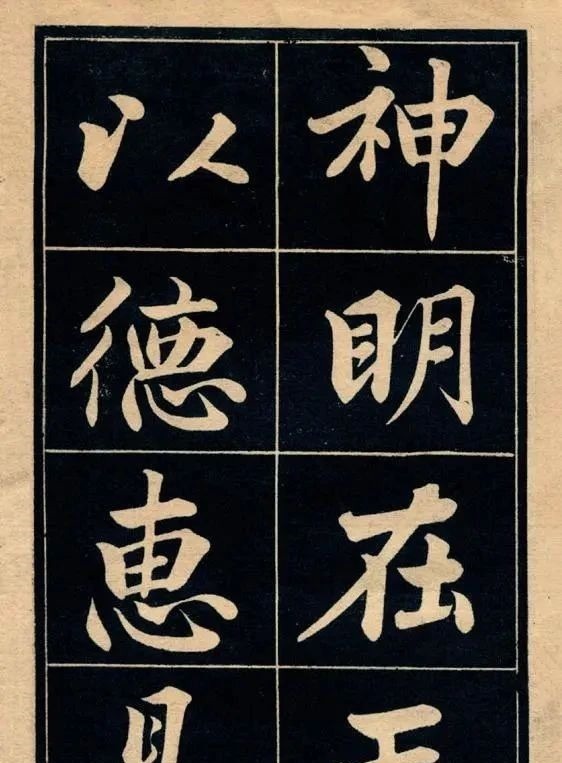 神明在
以德惠